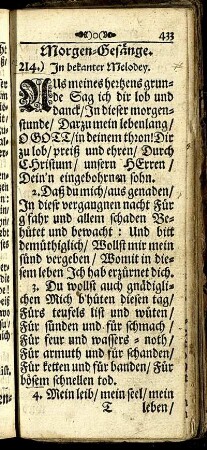 433
Morgen-Gesänge.
214.) In bekanter Melodey.
AUs meines hertzens grun-
de Sag ich dir lob und
danck/ In dieser morgen-
stunde/ Darzu mein lebenlang/
O GOTT/ in deinem thron! Dir
zu lob/ preiß und ehren/ Durch
CHristum/ unsern HErren/
Dein'n eingebohrnen sohn.
2. Daß du mich/ aus genaden/
In dieser vergangnen nacht Für
g'fahr und allem schaden Be-
hütet und bewacht: Und bitt
demüthiglich/ Wollst mir mein
sünd vergeben/ Womit in die-
sem leben Ich hab erzürnet dich.
3. Du wollst auch gnädigli-
chen Mich b'hüten diesen tag/
Fürs teufels list und wüten/
Für sünden und für schmach/
Für feur und wassers-noth/
Für armuth und für schanden/
Für ketten und für banden/ Für
bösem schnellen tod.
4. Mein leib/ mein seel/ mein
T leben/